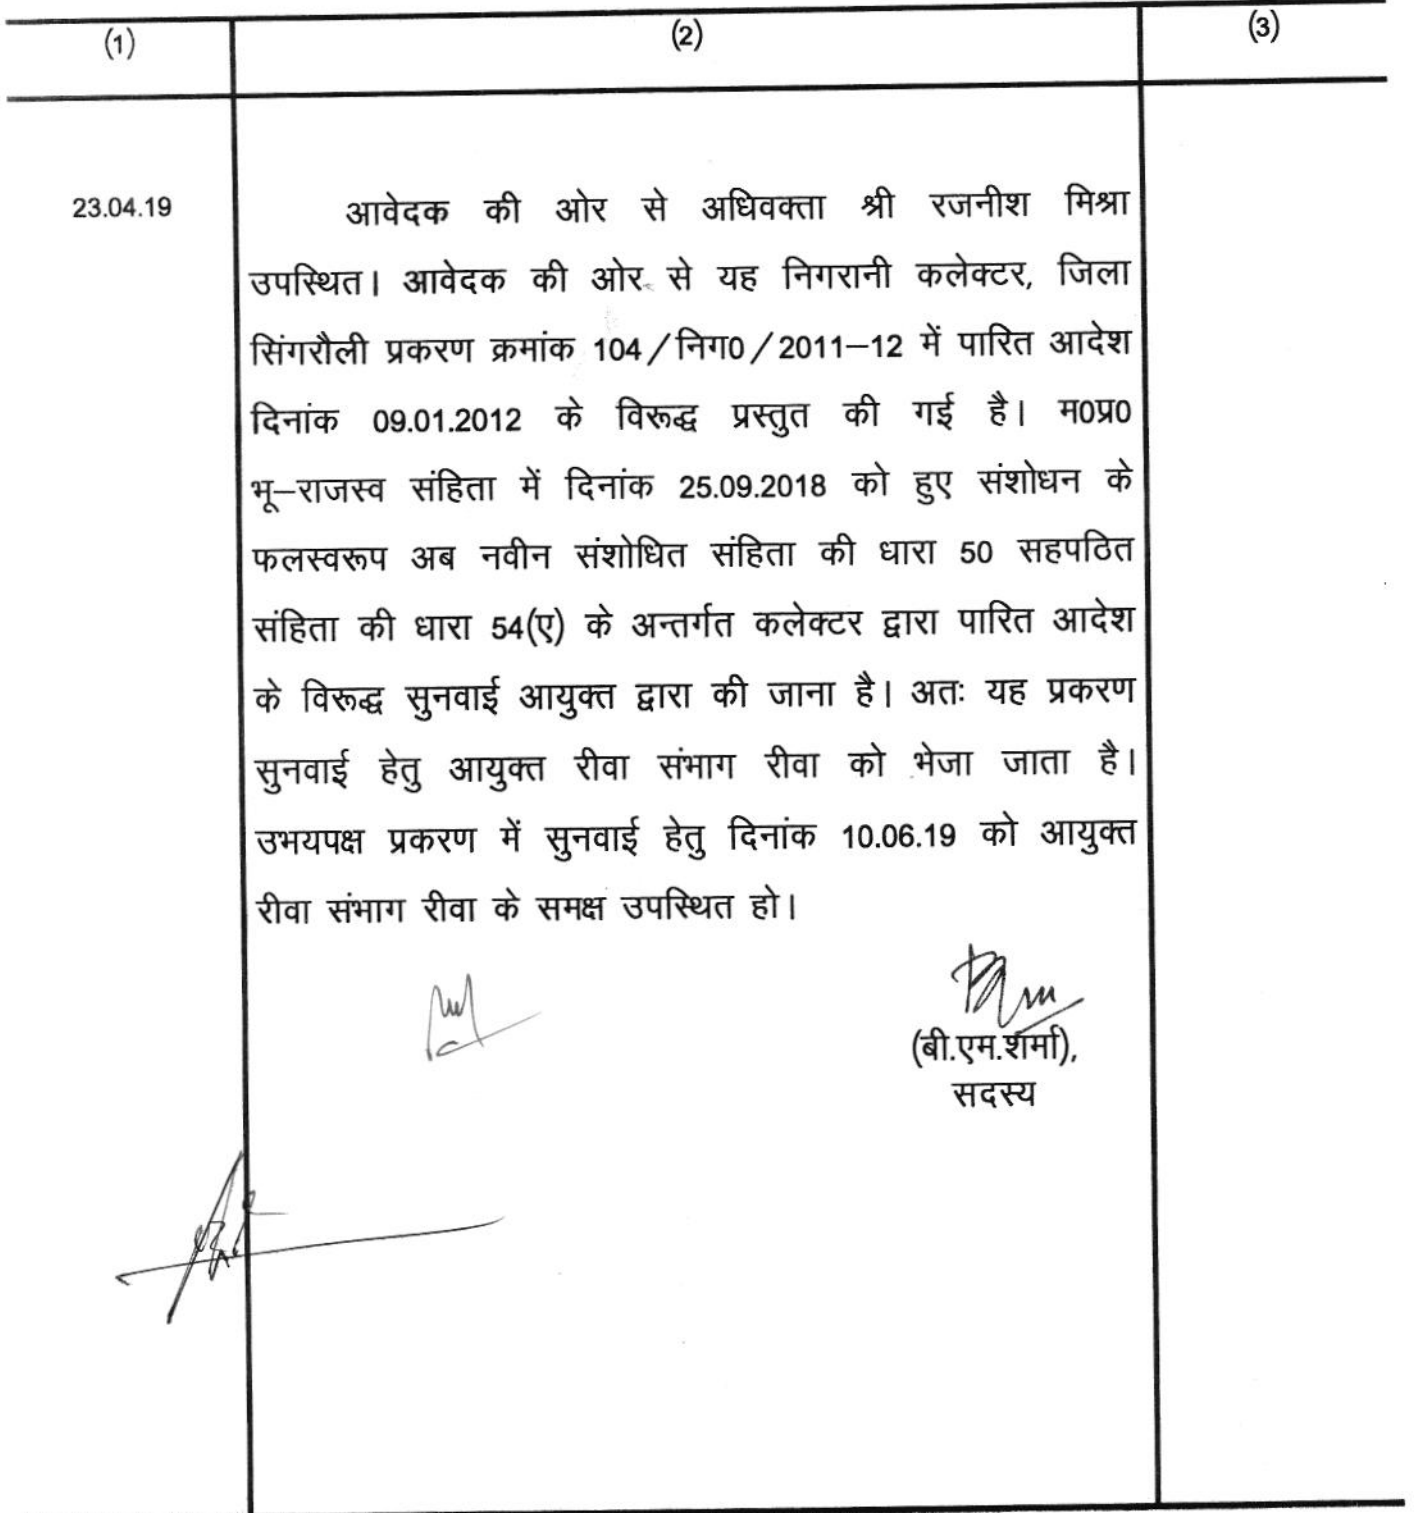 (1) (2) (3)
23.04.19 आवेदक की ओर से अधिवक्ता श्री रजनीश मिश्रा
उपस्थित। आवेदक की ओर से यह निगरानी कलेक्टर, जिला
सिंगरौली प्रकरण क्रमांक 104/निग0/2011–12 में पारित आदेश
दिनांक 09.01.2012 के विरूद्ध प्रस्तुत की गई है। म0प्र0
भू–राजस्व संहिता में दिनांक 25.09.2018 को हुए संशोधन के
फलस्वरूप अब नवीन संशोधित संहिता की धारा 50 सहपठित
संहिता की धारा 54(ए) के अन्तर्गत कलेक्टर द्वारा पारित आदेश
के विरूद्ध सुनवाई आयुक्त द्वारा की जाना है। अतः यह प्रकरण
सुनवाई हेतु आयुक्त रीवा संभाग रीवा को भेजा जाता है।
उभयपक्ष प्रकरण में सुनवाई हेतु दिनांक 10.06.19 को आयुक्त
रीवा संभाग रीवा के समक्ष उपस्थित हो।
(बी.एम.शर्मा),
सदस्य